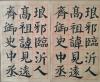 琅邪臨沂人
高祖諱見遠
齊御史中丞
琅邪臨沂人
高祖諱見遠
齊御史中丞